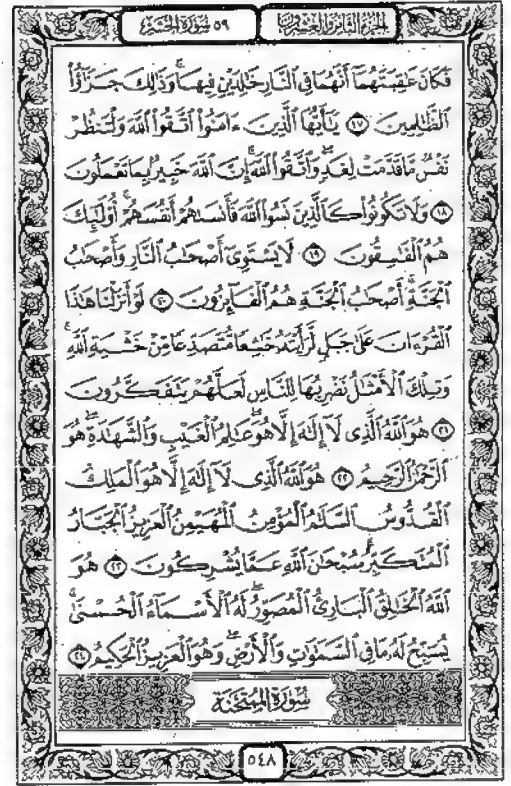 الجزء الثامن والعشرون ٥٩ سورة الحشر
فَكَانَ عَٰقِبَتَهُمَآ أَنَّهُمَا فِي ٱلنَّارِ خَٰلِدَيْنِ فِيهَاۚ وَذَٰلِكَ جَزَٰٓؤُاْ
ٱلظَّٰلِمِينَ ١٧ يَٰٓأَيُّهَا ٱلَّذِينَ ءَامَنُواْ ٱتَّقُواْ ٱللَّهَ وَلْتَنظُرْ
نَفْسٌ مَّا قَدَّمَتْ لِغَدٍۖ وَٱتَّقُواْ ٱللَّهَۚ إِنَّ ٱللَّهَ خَبِيرٌۢ بِمَا تَعْمَلُونَ
١٨ وَلَا تَكُونُواْ كَٱلَّذِينَ نَسُواْ ٱللَّهَ فَأَنسَىٰهُمْ أَنفُسَهُمْۚ أُوْلَٰٓئِكَ
هُمُ ٱلْفَٰسِقُونَ ١٩ لَا يَسْتَوِىٓ أَصْحَٰبُ ٱلنَّارِ وَأَصْحَٰبُ
ٱلْجَنَّةِۚ أَصْحَٰبُ ٱلْجَنَّةِ هُمُ ٱلْفَآئِزُونَ ٢٠ لَوْ أَنزَلْنَا هَٰذَا
ٱلْقُرْءَانَ عَلَىٰ جَبَلٍ لَّرَأَيْتَهُۥ خَٰشِعًا مُّتَصَدِّعًا مِّنْ خَشْيَةِ ٱللَّهِۚ
وَتِلْكَ ٱلْأَمْثَٰلُ نَضْرِبُهَا لِلنَّاسِ لَعَلَّهُمْ يَتَفَكَّرُونَ
٢١ هُوَ ٱللَّهُ ٱلَّذِى لَآ إِلَٰهَ إِلَّا هُوَۖ عَٰلِمُ ٱلْغَيْبِ وَٱلشَّهَٰدَةِۖ هُوَ
ٱلرَّحْمَٰنُ ٱلرَّحِيمُ ٢٢ هُوَ ٱللَّهُ ٱلَّذِى لَآ إِلَٰهَ إِلَّا هُوَ ٱلْمَلِكُ
ٱلْقُدُّوسُ ٱلسَّلَٰمُ ٱلْمُؤْمِنُ ٱلْمُهَيْمِنُ ٱلْعَزِيزُ ٱلْجَبَّارُ
ٱلْمُتَكَبِّرُۚ سُبْحَٰنَ ٱللَّهِ عَمَّا يُشْرِكُونَ ٢٣ هُوَ
ٱللَّهُ ٱلْخَٰلِقُ ٱلْبَارِئُ ٱلْمُصَوِّرُۖ لَهُ ٱلْأَسْمَآءُ ٱلْحُسْنَىٰۚ
يُسَبِّحُ لَهُۥ مَا فِى ٱلسَّمَٰوَٰتِ وَٱلْأَرْضِۖ وَهُوَ ٱلْعَزِيزُ ٱلْحَكِيمُ ٢٤
سورة الممتحنة
٥٤٨